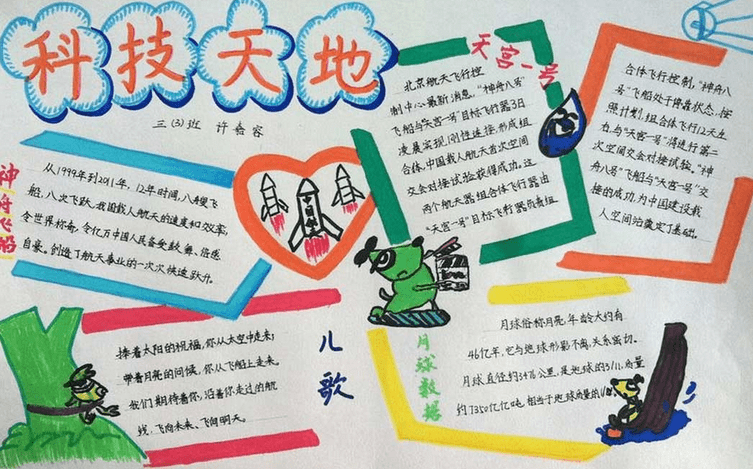 科技天地
三(3)班 许睿容
神舟飞船
从1999年到2011年,12年时间,八艘飞
船,八次飞跃,我国载人航天的速度和效率,
令世界称奇,令亿万中国人民备受鼓舞、倍感
自豪。创造了航天事业的一次次快速跃升。
天宫一号
北京航天飞行控
制中心最新消息,"神舟八号"
飞船与"天宫一号"目标飞行器3日
凌晨实现刚性连接,形成组
合体,中国载人航天首次空间
交会对接试验获得成功。这
两个航天器组合体飞行器由
"天宫一号"目标飞行器负责组
合体飞行控制,"神舟八
号"飞船处于停靠状态,按
照计划,组合体飞行12天左
右,与"天宫一号"将进行第二
次空间交会对接试验。"神
舟八号"飞船与"天宫一号"交
接的成功,为中国建设载
人空间站奠定了基础。
儿歌
捧着太阳的祝福,你从太空中走来;
带着月亮的问候,你从飞船上走来。
我们期待着你,沿着你走过的航
线,飞向未来、飞向明天。
月球数据
月球俗称月亮,年龄大约有
46亿年,它与地球形影不离,关系密切。
月球直径约3476公里,是地球的3/11,质量
约7350亿亿吨,相当于地球质量的1/81